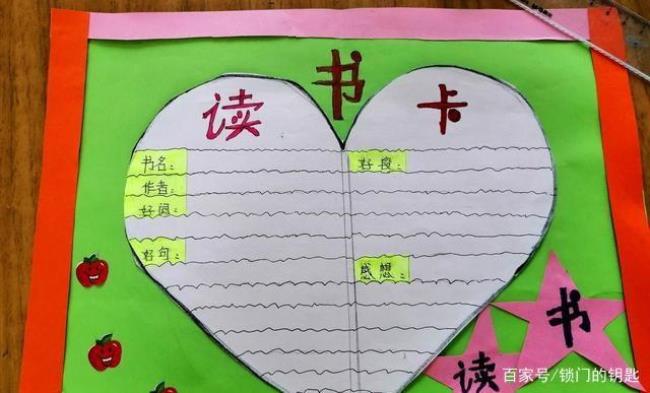 读书卡
书名：
作者：
好词：
好句：
好段：
感想：
读书
百家号/锁门的钥匙